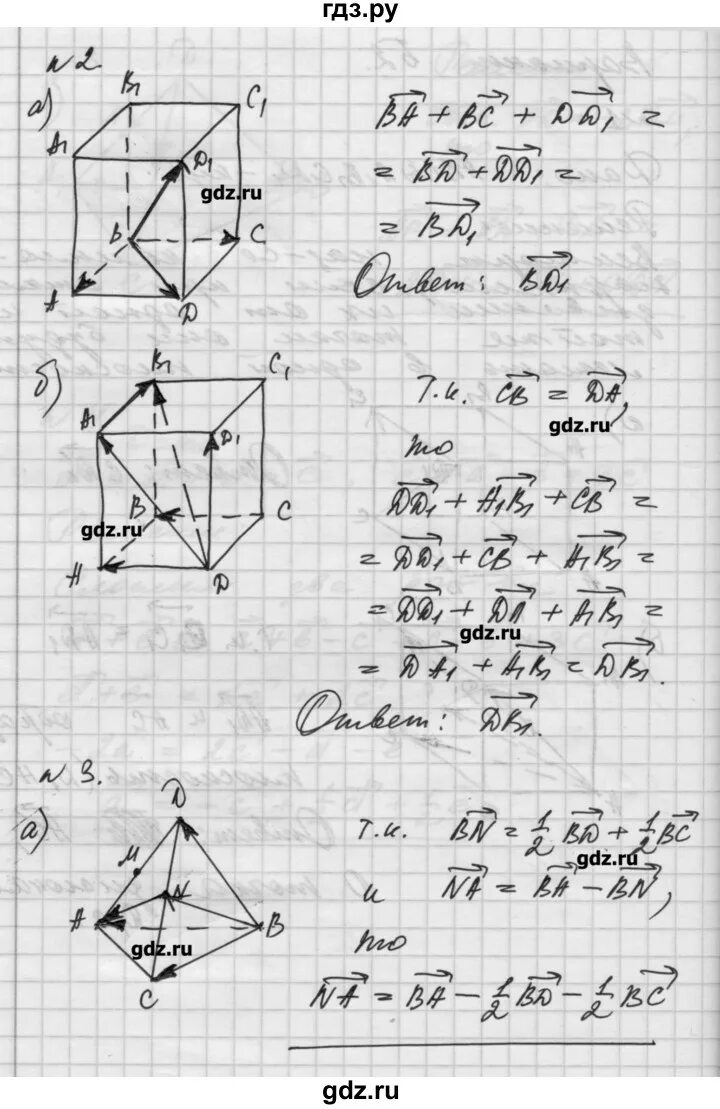 гдз.ру
№2.
а)
B₁
C₁
A₁
D₁
gdz.ru
B
C
A
D
BA + BC + DD₁ =
= BD + DD₁ =
= BD₁
Ответ: BD₁
б)
B₁
C₁
A₁
D₁
B
C
gdz.ru
A
D
Т.к. CB = DA,
gdz.ru
то
DD₁ + A₁B₁ + CB =
= DD₁ + CB + A₁B₁ =
= DD₁ + DA + A₁B₁ =
gdz.ru
= DA₁ + A₁B₁ = DB₁.
Ответ: DB₁.
№3.
а)
D
M
N
A
B
gdz.ru
C
т.к. BN = 1/2 BD + 1/2 BC
gdz.ru
и NA = BA − BN,
то
NA = BA − 1/2 BD − 1/2 BC
gdz.ru